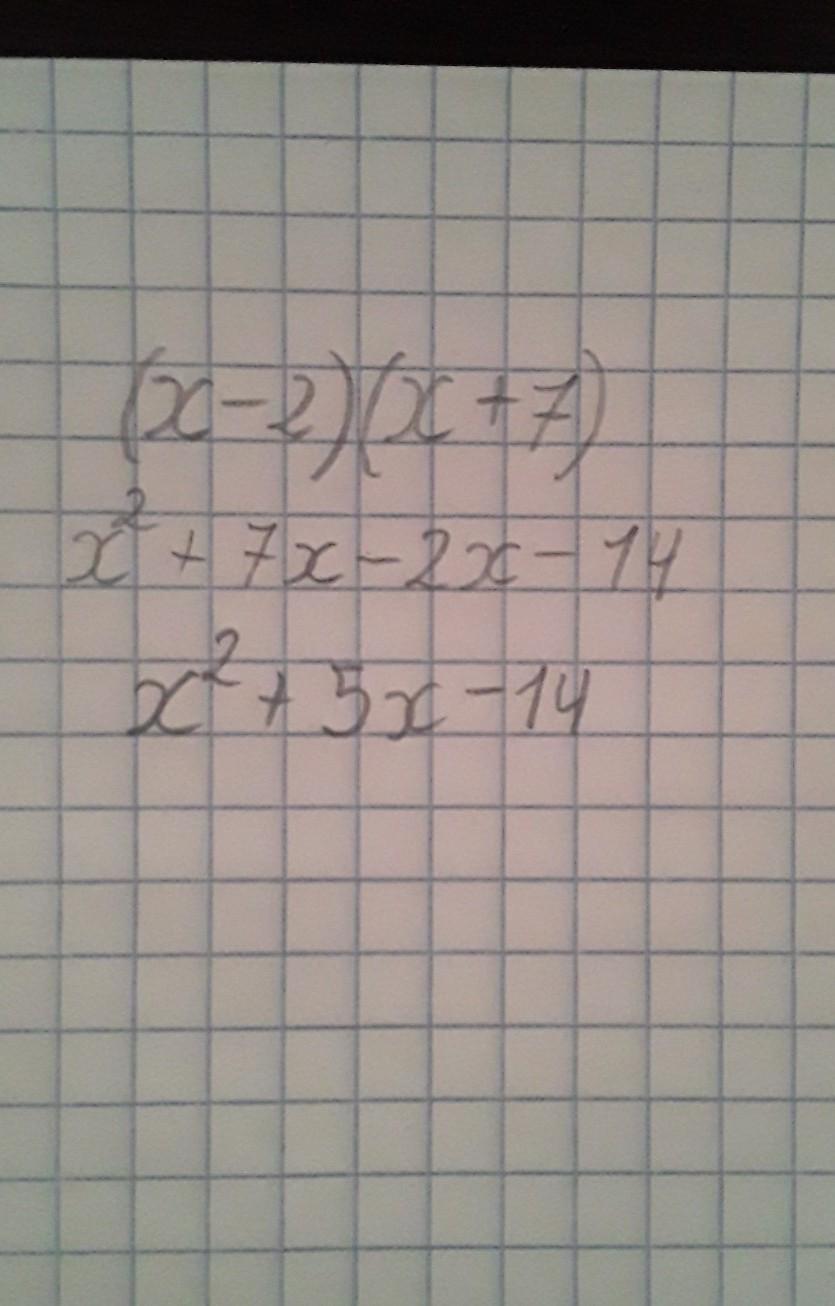 (x-2)(x+7)
x² + 7x - 2x - 14
x² + 5x - 14